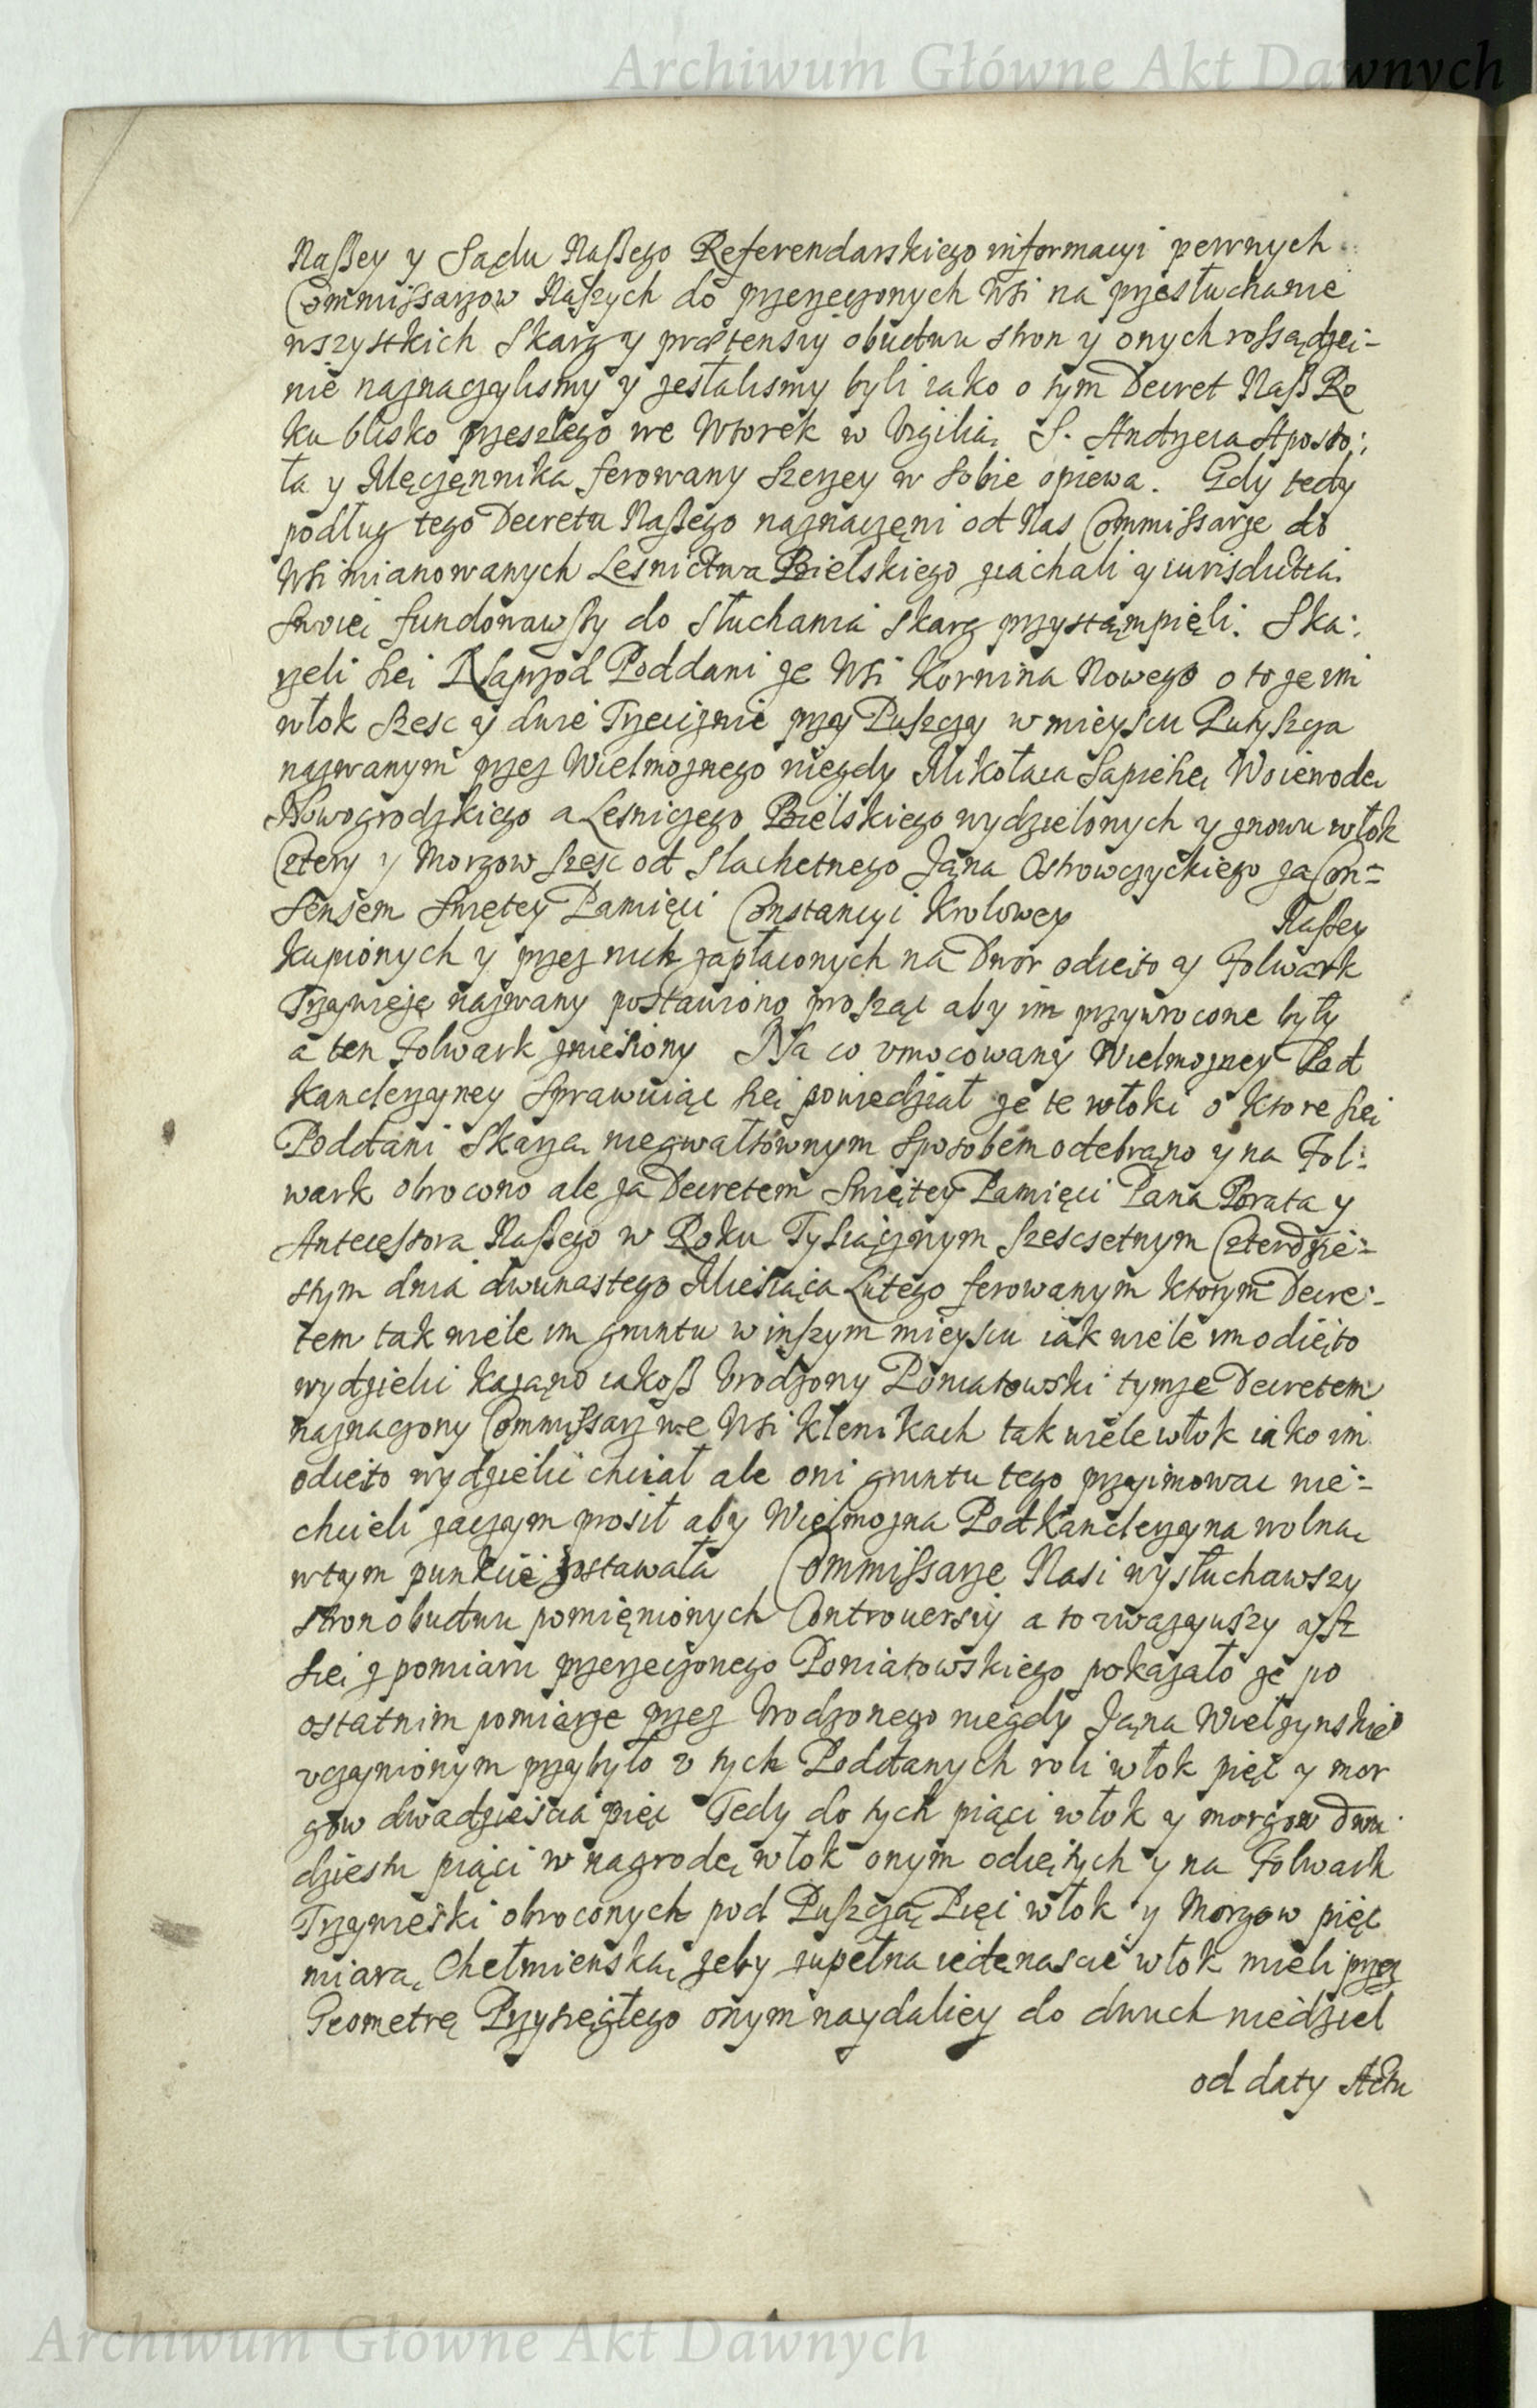 Archiwum Główne Akt Dawnych
Naßey y Sądu Naßego Referendarskiego informacyi pewnych
Commissarzow Naszych do przerzeczonych Wsi na przesłuchanie
wszystkich Skarg y prætensiy obudwu stron y onych rossądze-
nie naznaczylismy y zesłalismy byli iako o tym Decret Naß Ro
ku blisko przeszłego we Wtorek w Vigilią S. Andrzeia Aposto-
ła y Męczęnnika ferowany Szerzey w Sobie opiewa. Gdy tedy
podług tego Decretu Naßego naznaczęni od Nas Commissarze do
Wsi mianowanych Lesnictwa Bielskiego ziachali y iurisdictią
Swoię fundowawszy do słuchania skarg przystąmpięli. Ska-
rzeli Się Naprzod Poddani ze Wsi Kornina Nowego o to ze im
włok szesc y dwie Trzeciznie przy Puszczy w mieyscu Putyszcza
nazwanym przez Wielmoznego niegdy Mikołaia Sapiehę Woiewodę
Nowogrodzkiego a Lesniczego Bielskiego wydzielonych y znowu włok
Cztery y Morgow szesc od Slachetnego Jana Ostrowczyckiego za Con-
Sensem Swiętey Pamięci Constancyi Krolowey Naßey
kupionych y przez nich zapłaconych na Dwor odięto y Folwark
Trzywieze nazwany postawiono prosząc aby im przywrocone były
a ten Folwark zniesiony Na co vmocowany Wielmozney Pod
kanclerzyney Sprawuiąc Się powiedział ze te włoki o ktore się
Poddani Skarzą niegwałtownym Sposobem odebrano y na Fol-
wark obrocono ale za Decretem Swiętey Pamięci Pana Brata y
Antecessora Naßego w Roku Tysiącznym Szescsetnym Czterdzie-
stym dnia dwunastego Miesiąca Lutego ferowanym ktorym Decre-
tem tak wiele im gruntu w inszym mieyscu iak wiele im odięto
wydzielic kazano iakoß Vrodzony Poniatowski tymze Decretem
naznaczony Commissarz we Wsi Klenikach tak wiele włok iako im
odięto wydzielic chciał ale oni gruntu tego przyimowac nie-
chcieli zaczym prosił aby Wielmozna Podkanclerzyna wolną
w tym punkcie zostawała Commissarze Nasi wysłuchawszy
stron obudwu pomięnionych Controuersiy a to vwazywszy ysz
Się z pomiaru przerzeczonego Poniatowskiego pokazało ze po
ostatnim pomiarze przez Vrodzonego niegdy Jana Wielzynskieo
vczynionym przybyło v tych Poddanych roli włok pięc y mor
gow dwadziescia pięc Tedy do tych piąci włok y morgow dwu
dziestu piąci w nagrodę włok onym odiętych y na Folwark
Trzywieski obroconych pod Puszczą Pięc włok y Morgow pięc
miarą Chełmienską zeby zupełna iedenascie włok mieli przez
Geometrę Przysięgłego onym naydaliey do dwuch niedziel
od daty Actu
Archiwum Główne Akt Dawnych